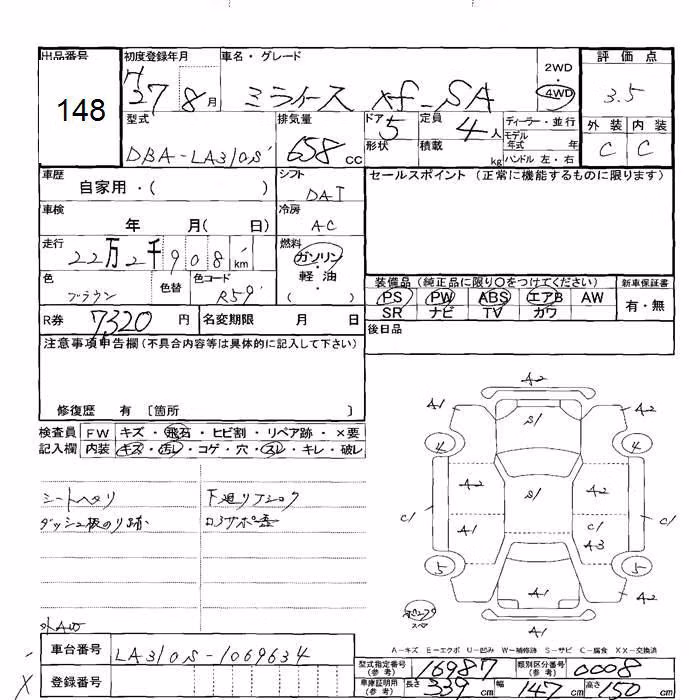 出品番号 初度登録年月 車名・グレード 2WD・4WD 評価点
148 H27 8月 ミライース xf-SA 3.5
型式 排気量 ドア 5 定員 4人 ディーラー・並行 外装 内装
DBA-LA310S 658 cc 形状 積載 kg モデル年式 年 C C
ハンドル 左・右
車歴 シフト セールスポイント (正常に機能するものに限ります)
自家用・( ) DAT
車検 冷房
年 月( 日) AC
走行 燃料
22万2千908 km ガソリン・軽油
色 色替 色コード ( )
ブラウン R59
装備品 (純正品に限り○をつけてください) 新車保証書
PS PW ABS エアB AW 有・無
SR ナビ TV カワ
R券 7320円 名変期限 月 日
後日品
注意事項申告欄(不具合内容等は具体的に記入して下さい)
修復歴 有 〔箇所 〕
検査員 FW キズ・飛石・ヒビ割・リペア跡・×要
記入欄 内装 キズ・汚レ・コゲ・穴・スレ・キレ・破レ
シートヘタリ 下廻リ
ダッシュ板のり跡
A2
A1 S1 A2
4 4
A2 S1 A2
C1 A1 C1 C1
A3
5 5
A1 A2
A1
A-キズ E-エクボ U-凹み W-補修跡 S-サビ C-腐食 XX-交換済
車台番号 LA310S-1069634
登録番号
型式指定番号(参考) 16987 類別区分番号(参考) 0008
車庫証明用(参考) 長さ 339cm 幅 147cm 高さ 150cm